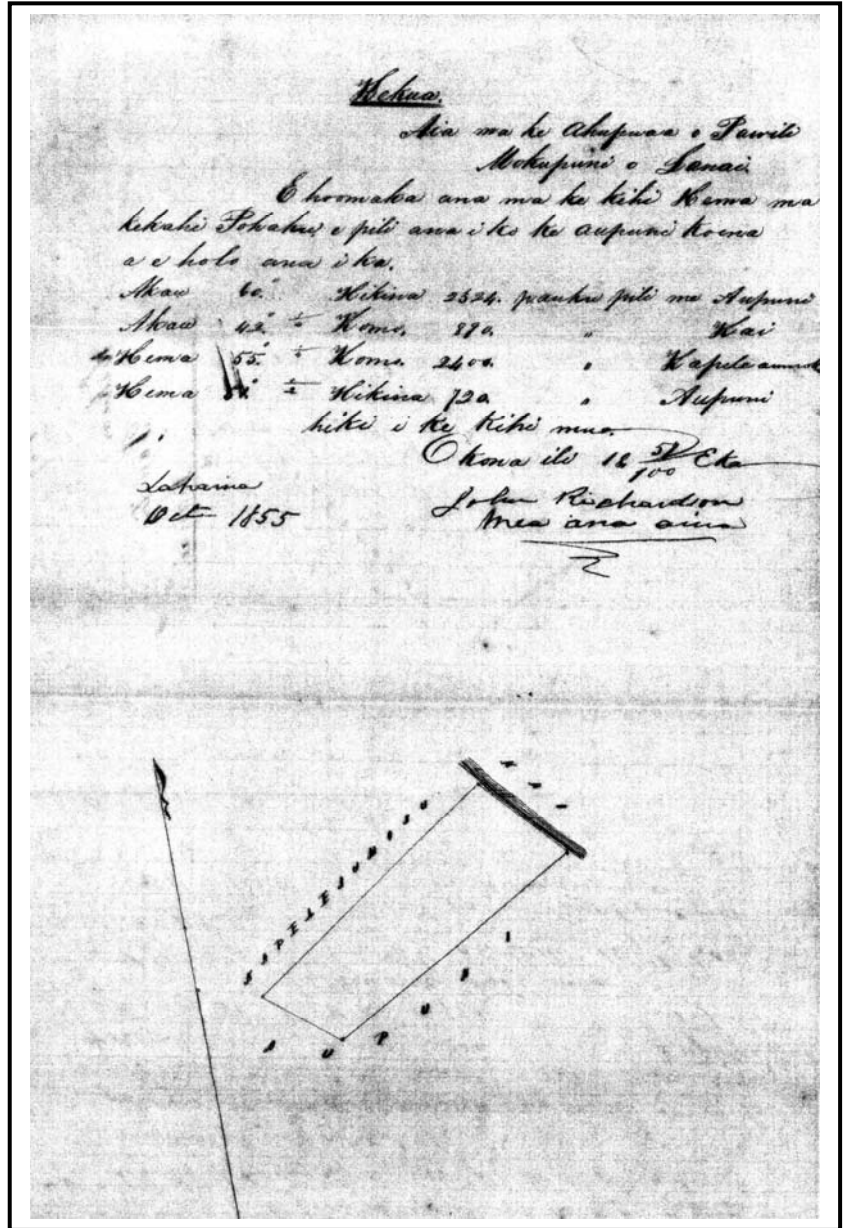 Kekua.
Aia ma ke Ahupuaa o Pawili
Mokupuni o Lanai.
E hoomaka ana ma ke kihi Hema ma
kekahi Pohaku e pili ana i ko ke aupuni koena
a e holo ana i ka.
Akau 60.° Hikina 2524. pauku pili me Aupuni
Akau 42.° ½ Komo. " Kai
Hema 55.° ½ Komo. 2400. "
Hema ½ Hikina 720. " Aupuni
hiki i ke Kihi mua.
Okona ili Eka
Lahaina
Oct 1855
John Richardson
Mea ana aina
A U P U N I